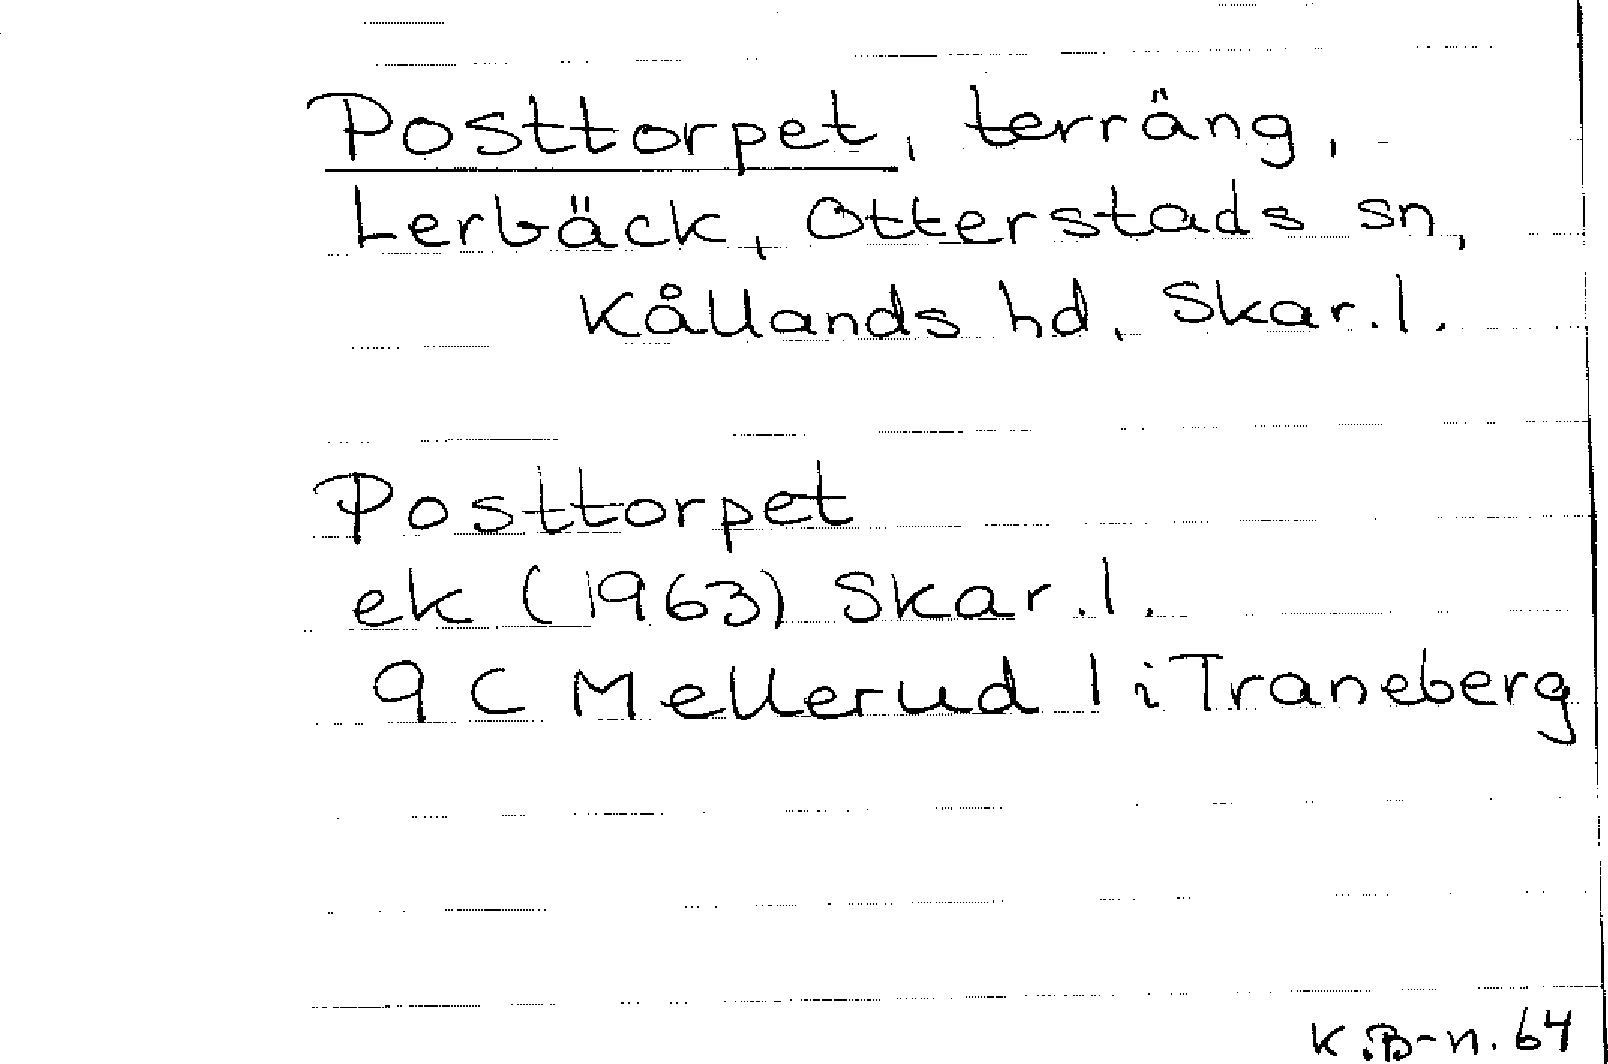 Posttorpet, terräng,
Lerbäck, Otterstads sn,
Kållands hd, Skar. l.
Posttorpet
ek (1963) Skar. l.
9 C Mellerud 1 i Traneberg
K.B-n. 64